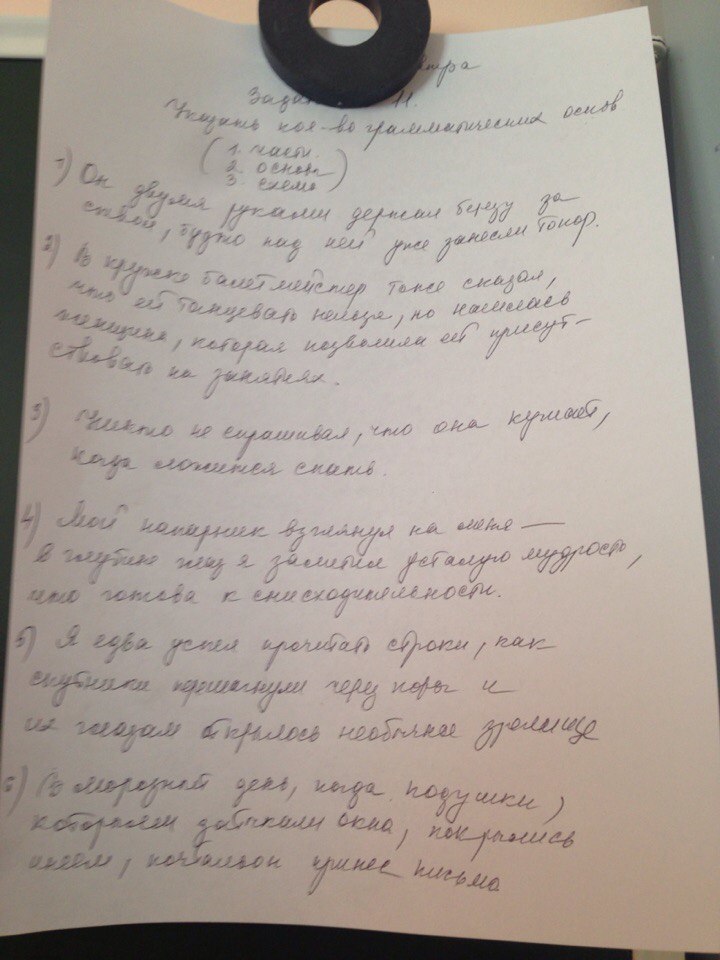 Указать кол-во грамматических основ
(1. части
2. основы
3. схема)
1) Он двумя руками держал березу за
ствол, будто над ней уже занесли топор.
2) В кружке балетмейстер тоже сказал,
что ей танцевать нельзя, но нашлась
женщина, которая позволила ей присут-
ствовать на занятиях.
3) Никто не спрашивал, что она кушает,
когда ложится спать.
4) Мой напарник взглянул на меня —
в глубине глаз я заметил усталую мудрость,
что готова к снисходительности.
5) Я едва успел прочитать строки, как
спутники перешагнули через порог и
их глазам открылось необычное зрелище
6) В морозный день, когда подушки,
которыми затыкали окна, покрылись
инеем, почтальон принес письмо